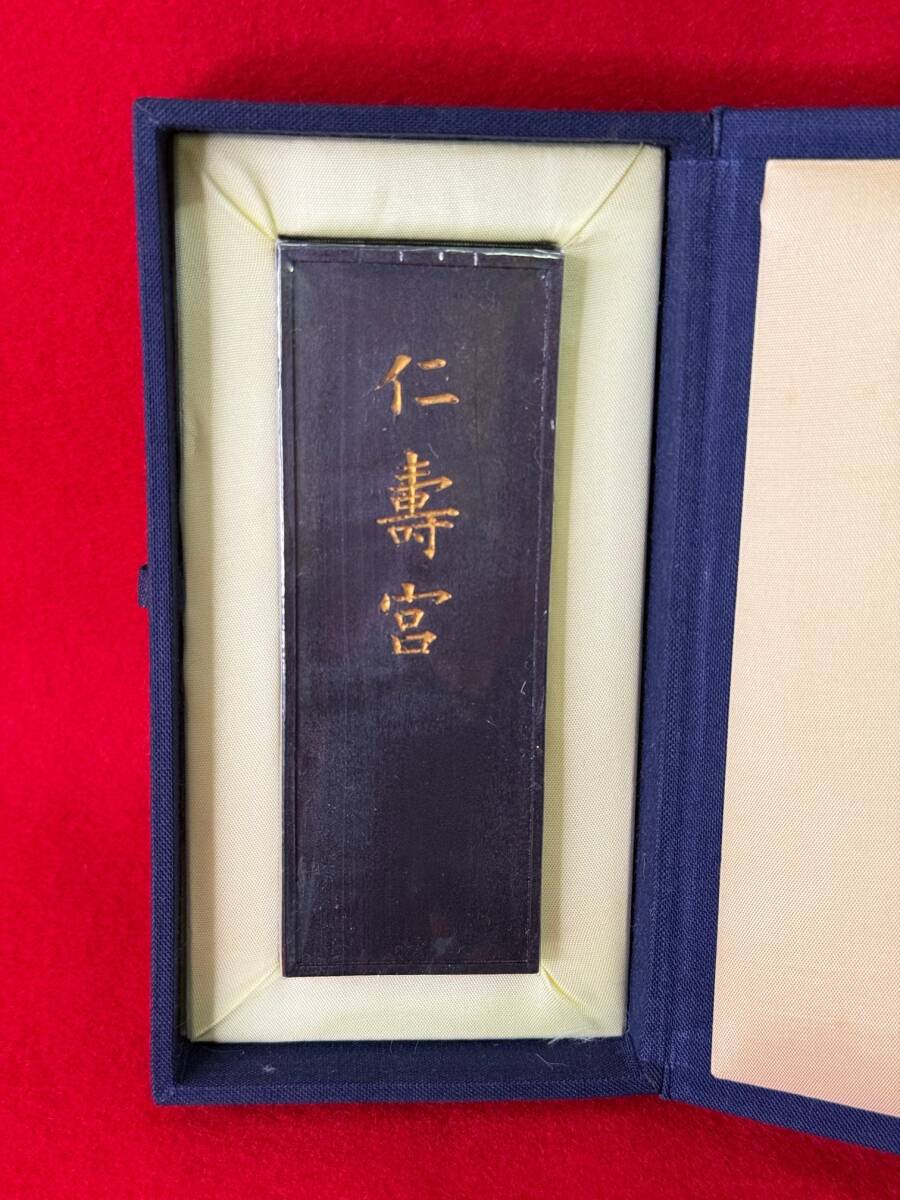 仁壽宮